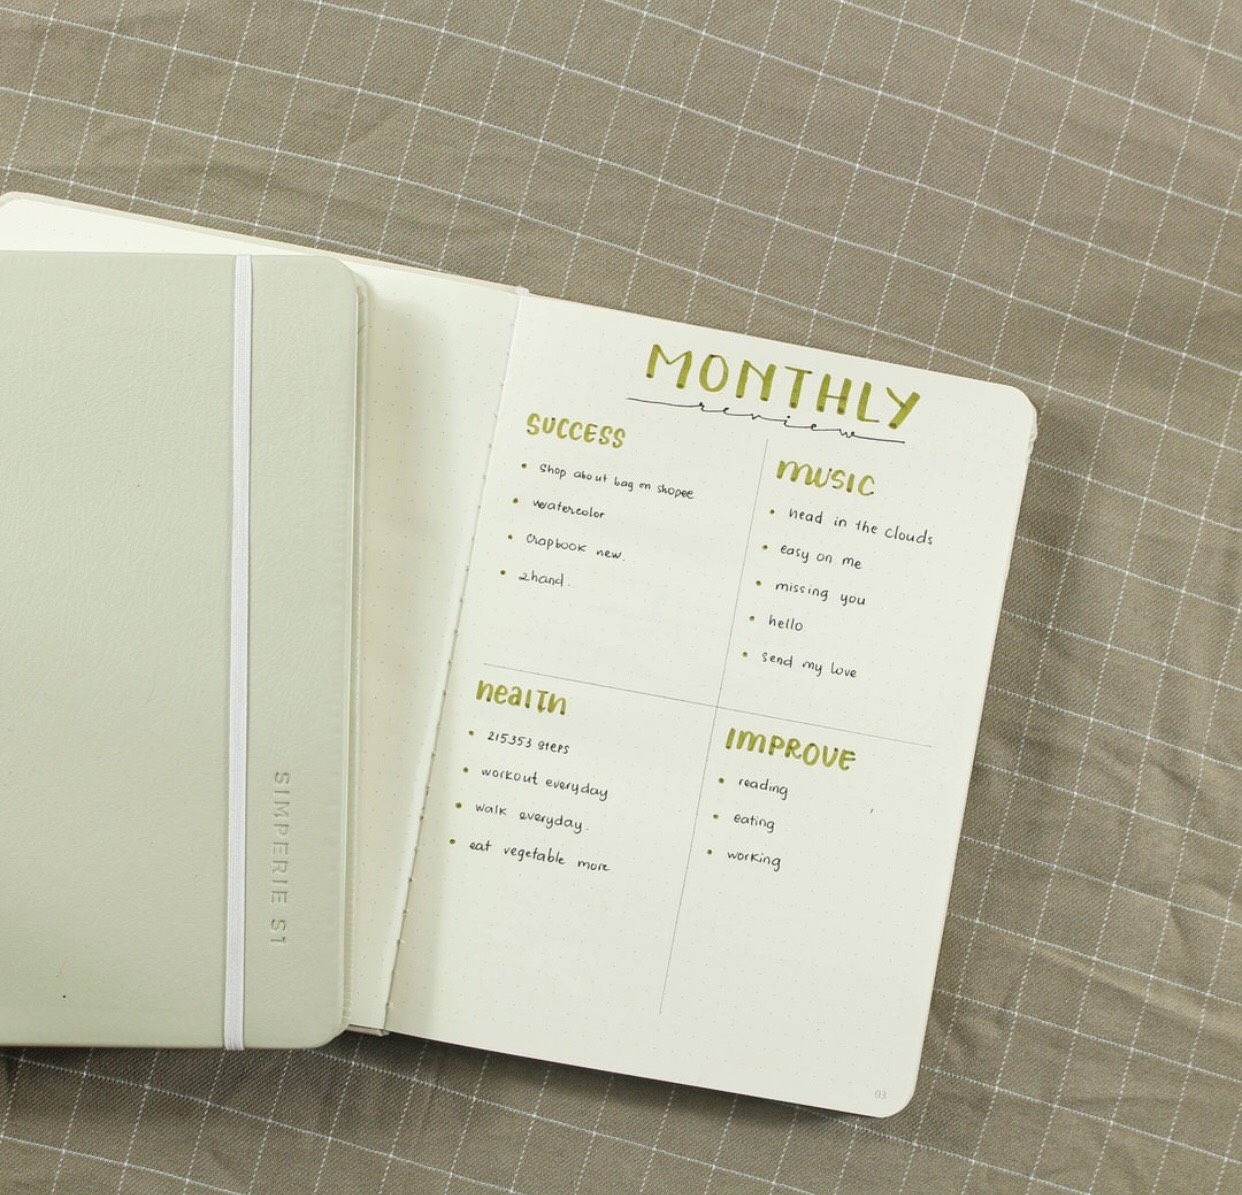 MONTHLY
review
SUCCESS
shop about bag on shopee
watercolor
crapbook new.
2hand.
MUSIC
head in the clouds
easy on me
missing you
hello
send my love
health
215353 steps
workout everyday
walk everyday.
eat vegetable more
IMPROVE
reading
eating
working
03
SIMPERIE S1